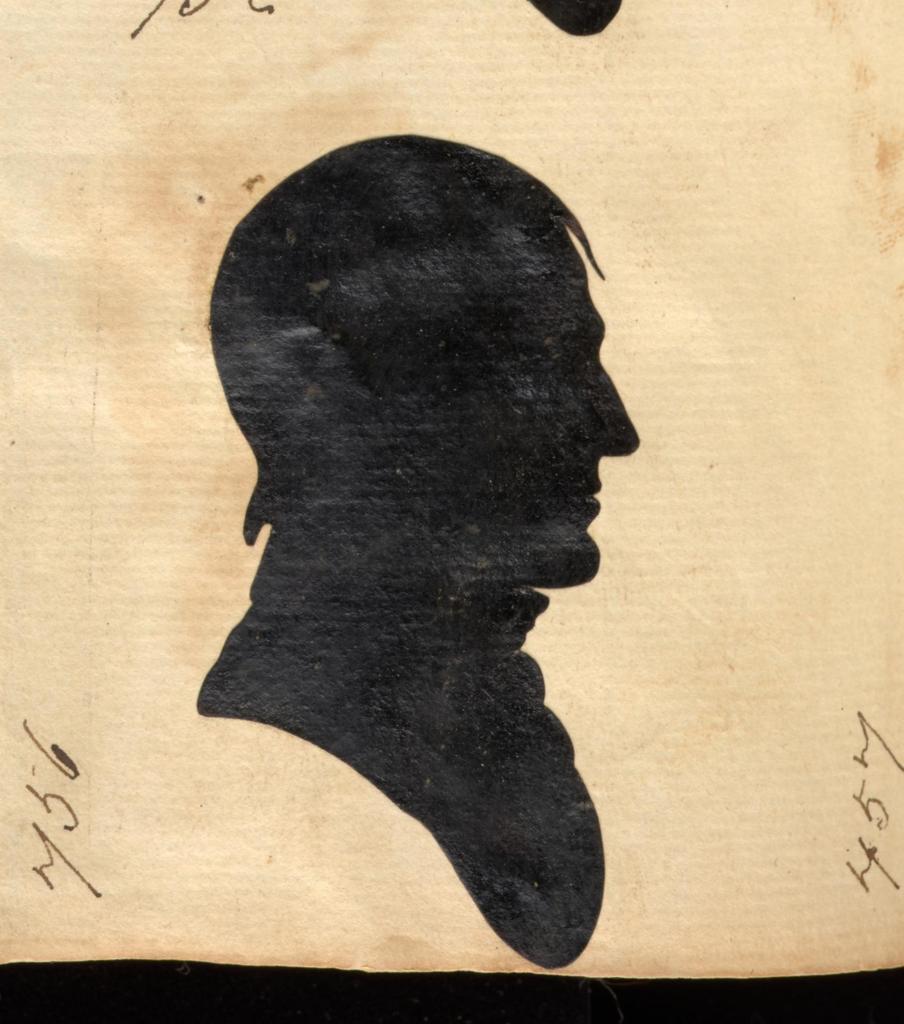 456
457